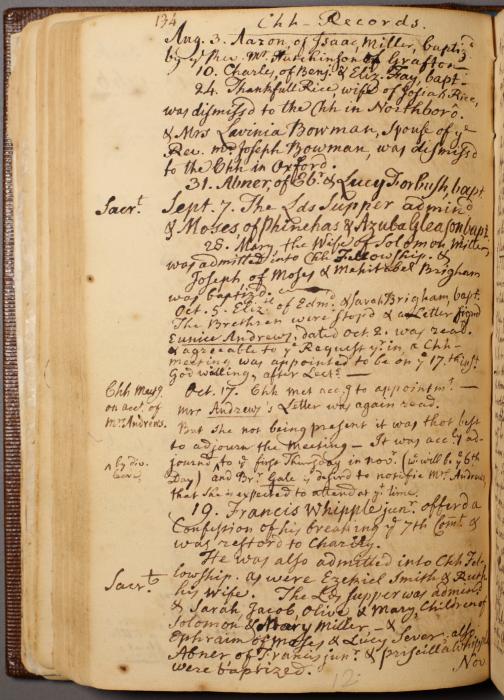 134 Chh-Records.
Aug. 3. Aaron, of Isaac Miller, baptiz'd
by ye Rev. Mr. Hutchinson of Grafton
10. Charles, of Benj. & Eliz. Fay, bapt.
24. Thankfull Rice, wife of Josiah Rice,
was dismiss'd to the Chh in Northboro.
& Mrs Lavinia Bowman, Spouse of ye
Rev. mr Joseph Bowman, was dismiss'd
to the Chh in Oxford.
31. Abner, of Eb. & Lucy Forbush, bapt
Sacrt. Sept. 7. The Lds Supper admind
& Moses of Phinehas & Azuba Gleason bapt.
28. Mary, the Wife of Solomon Miller,
was admitted into Chh Fellowship. &
Joseph of Moses & Mehitabel Brigham
was baptiz'd.
Oct. 5. Eliz. of Edmd. & Sarah Brigham, bapt.
The Brethren were stop'd & a Letter sign'd
Eunice Andrews, dated Oct. 2. was read.
& agreeable to ye Request yrin, a Chh-
meeting was appointed to be on ye 17.th inst
God willing, after Lect.
Chh Meetg. Oct. 17. Chh met accg to appointmt.
on acc. of mrs Andrews's Letter was again read.
Mrs Andrews. But she not being present it was tho't best
to adjourn the Meeting — It was accg ad-
^ by div. journd ^ to ye first Thursday in novr. (wc will be ye 6th
Day) and Br. Gale is desir'd to notifie Mrs. Andrews
that she is expected to attend at yt time.
19. Francis Whipple junr. offer'd a
Confession of his breaking ye 7th Comt. &
was restor'd to Charity.
He was also admitted into Chh Fel-
Sacrt. lowship. as were Ezekiel Smith & Ruth
his Wife. The Lds Supper was admind
& Sarah, Jacob, Olive & Mary, Children of
Solomon & Mary Miller, — &
Ephraim of Moses & Lucy Sever. also
Abner of Francis junr. & Priscilla Whipple
were baptized. Nov
12